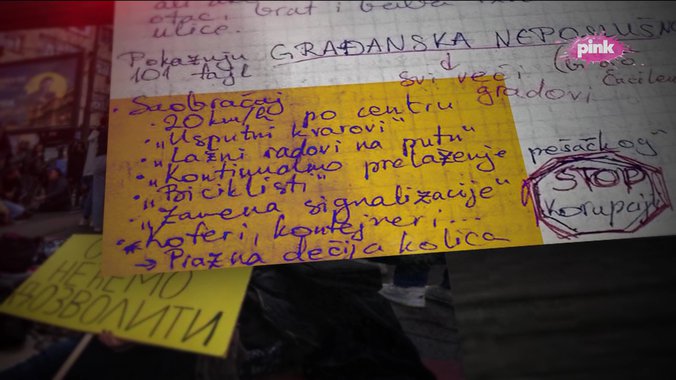 otac, brat i baba
ulice.
Pokazuju GRAĐANSKA NEPOSLUŠNO
101 fajl
svi veći gradovi
Ćacilend
pink
• Saobraćaj
• 20 km/h po centru
• „Usputni kvarovi"
• „Lažni radovi na putu"
• „Kontinualno prelaženje pešačkog"
• „Biciklisti"
• „Zamena signalizacije"
koferi, kontejneri...
→ Prazna dečija kolica
STOP
Korupciji
НЕЋЕМО
ДОЗВОЛИТИ